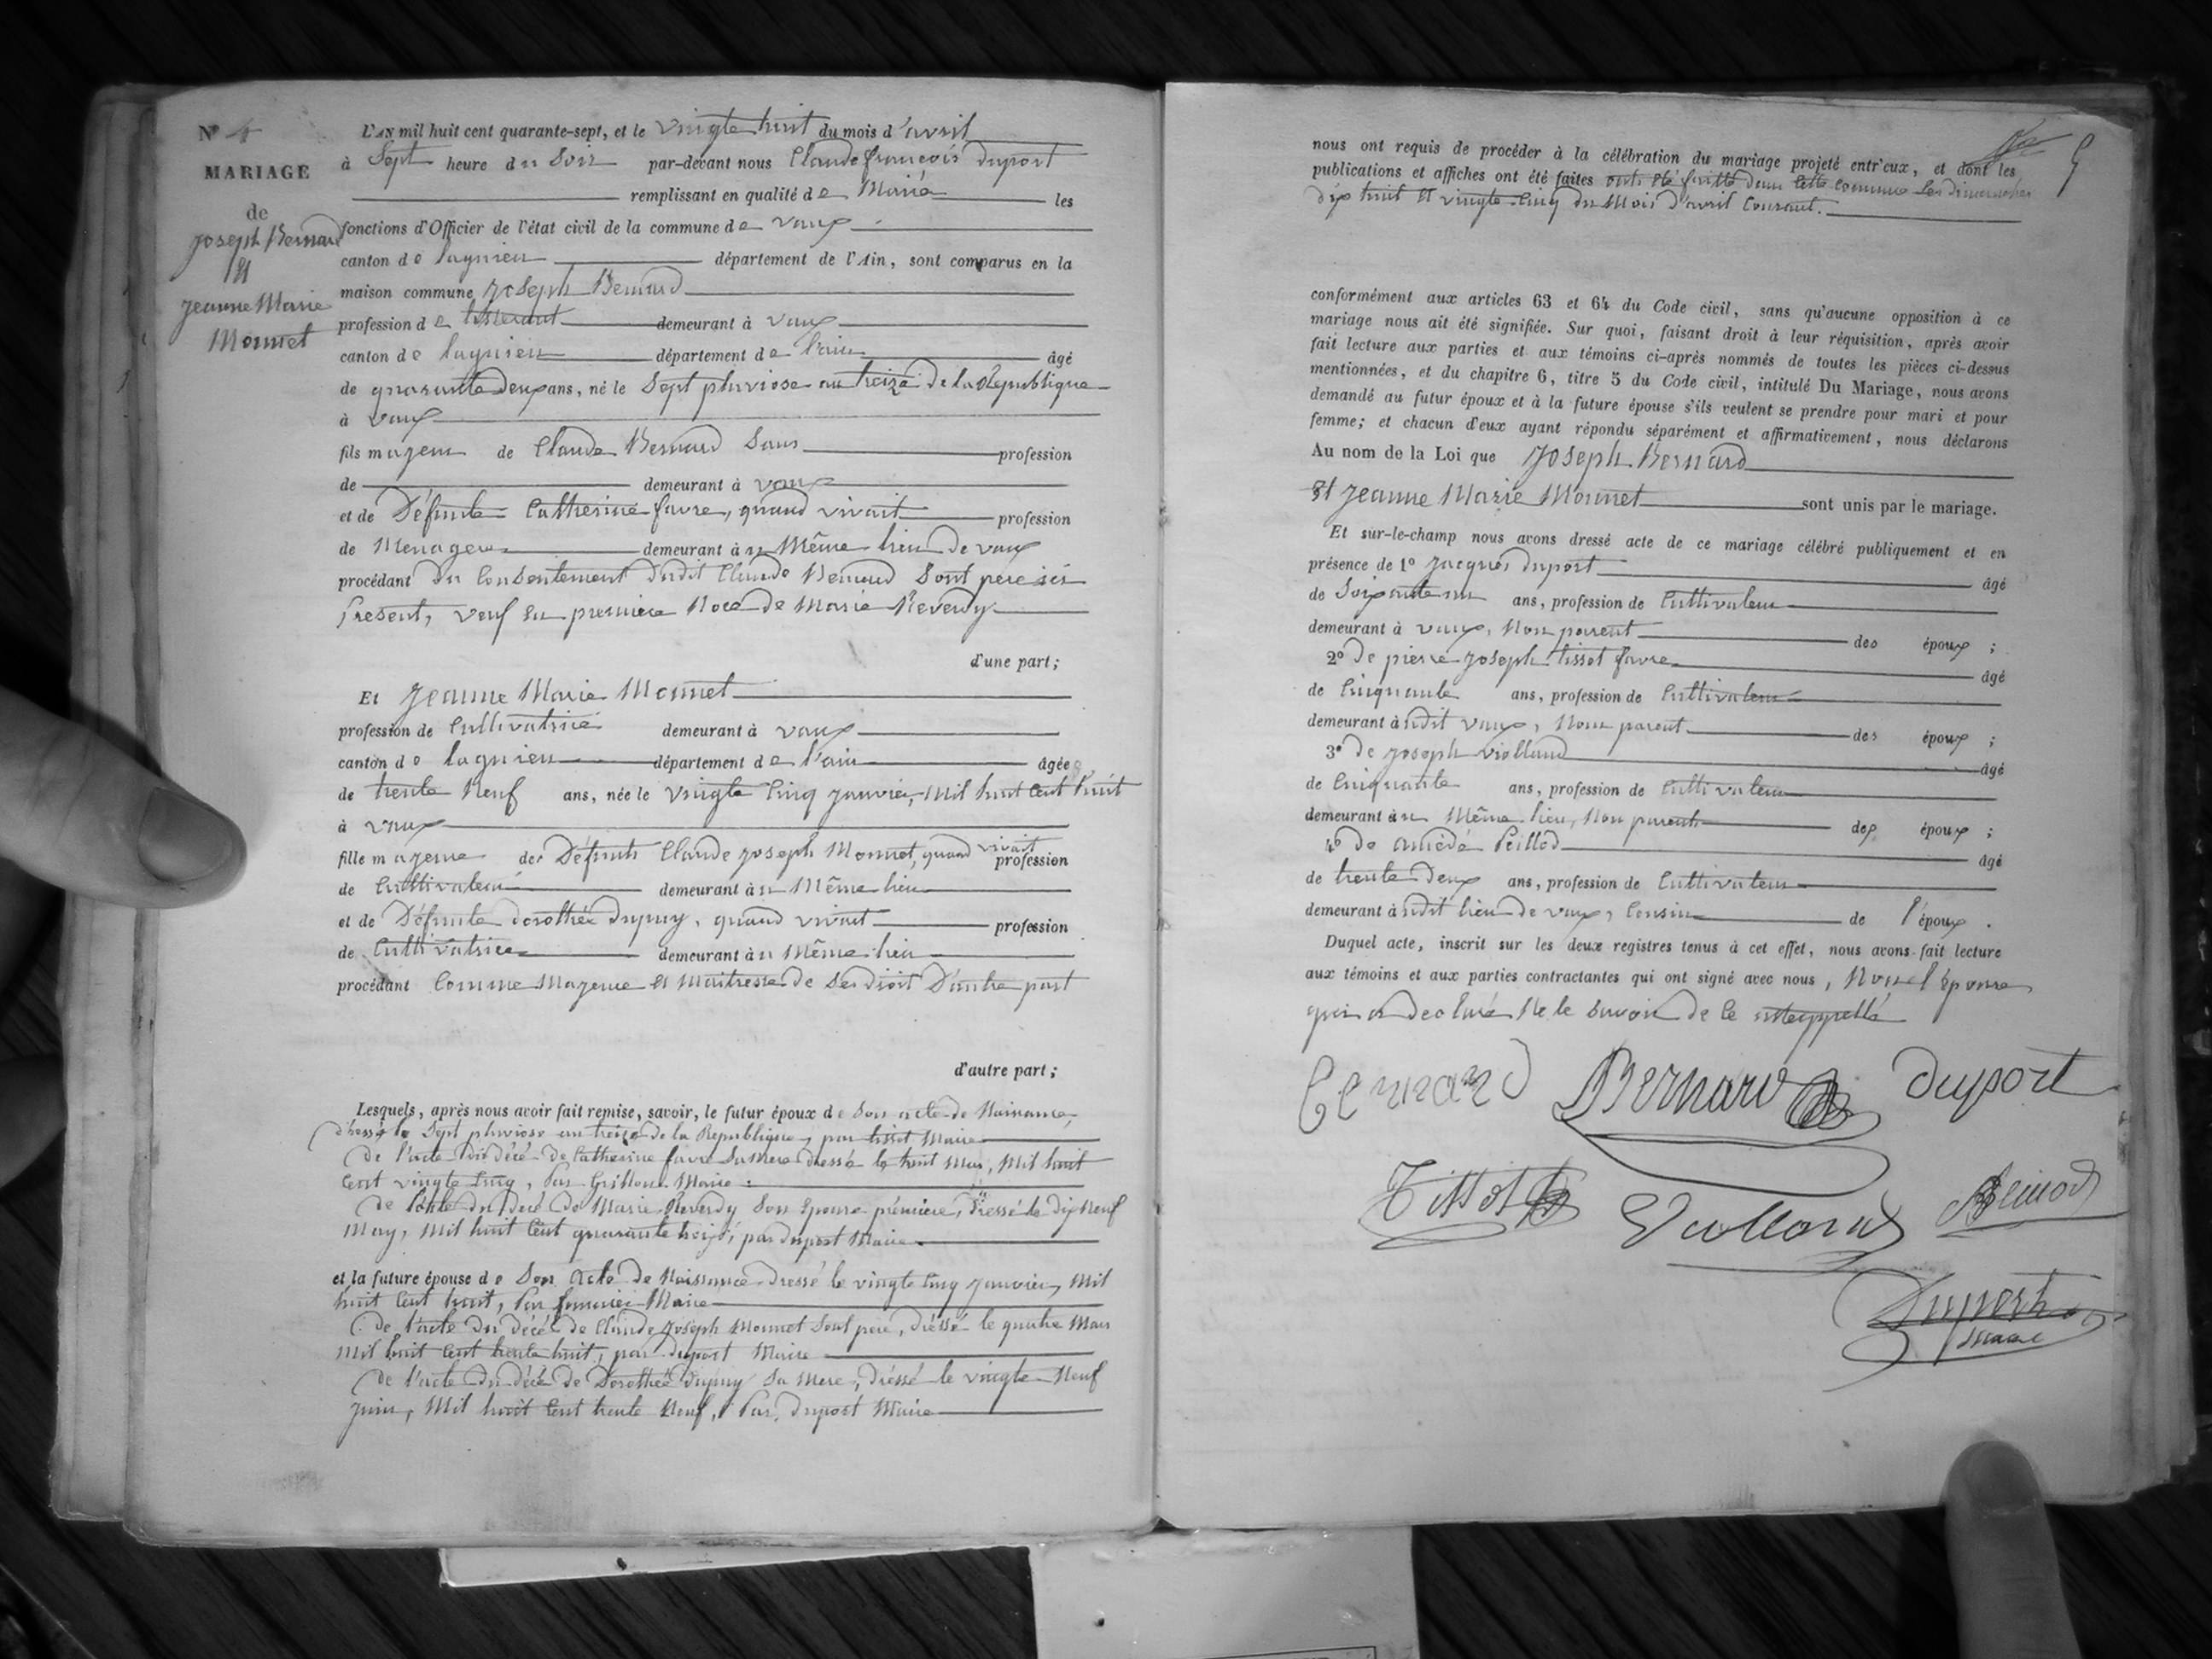 N° 4
MARIAGE
de
Joseph Bernard
Et
Jeanne Marie
Monnet
L'AN mil huit cent quarante-sept, et le vingte huit du mois d'avril
à Sept heure du Soir par-devant nous Claude françois duport
remplissant en qualité de Maire les
fonctions d'Officier de l'état civil de la commune de vaux
canton de lagnieu département de l'Ain, sont comparus en la
maison commune Joseph Bernard
profession de tisserant demeurant à vaux
canton de lagnieu département de l'ain âgé
de quarante deux ans, né le Sept pluviose an treize de la République
à vaux
fils majeur de Claude Bernard Sans profession
de demeurant à vaux
et de Défunte Catherine favre, quand vivait profession
de Menagere demeurant à u Même lieu de vaux
procédant du Consentement dudit Claude Bernard Sont pere ici
Present, veuf en premiere Noce de Marie Reverdy
d'une part;
Et Jeanne Marie Monnet
profession de Cultivatrice demeurant à vaux
canton de lagnieu département de l'ain âgée
de trente Neuf ans, née le vingte Cinq janvier, Mil huit Cent huit
à vaux
fille majeure de Défunt Claude Joseph Monnet, quand vivait profession
de Cultivateur demeurant à u Même lieu
et de Défunte dorothée dupuy, quand vivait profession
de Cultivatrice demeurant à u Même lieu
procédant Comme Majeure Et Maitresse de Ses droit D'autre part
d'autre part;
Lesquels, après nous avoir fait remise, savoir, le futur époux de Son acte de Naissance,
dressé le Sept pluviose an treize de la Republique, par tissot Maire
De l'acte du décé de Catherine favre Sa mere dressé le huit Mai, Mil huit
Cent vingte Cinq, Par Maire
De l'acte du decé de Marie Reverdy Son Epouse première, dressé le dix Neuf
May, Mil huit Cent quarante troise, par duport Maire
et la future épouse de Son Acte de Naissance dressé le vingte Cinq janvier, Mil
huit Cent huit, Par Maire
De l'acte du décé de Claude Joseph Monnet Sont pere, dréssé le quatre Mars
Mil huit Cent trente huit, par duport Maire
De l'acte du décé de Dorothée dupuy Sa Mere, dréssé le vingte Neuf
juin, Mil huit Cent trente Neuf, Par, duport Maire
5
nous ont requis de procéder à la célébration du mariage projeté entr'eux, et dont les
publications et affiches ont été faites ont été faitte dans Cette Commune Les dimanches
dix huit Et vingte-Cinq du Mois d'avril Courant.
conformément aux articles 63 et 64 du Code civil, sans qu'aucune opposition à ce
mariage nous ait été signifiée. Sur quoi, faisant droit à leur réquisition, après avoir
fait lecture aux parties et aux témoins ci-après nommés de toutes les pièces ci-dessus
mentionnées, et du chapitre 6, titre 5 du Code civil, intitulé Du Mariage, nous avons
demandé au futur époux et à la future épouse s'ils veulent se prendre pour mari et pour
femme; et chacun d'eux ayant répondu séparément et affirmativement, nous déclarons
Au nom de la Loi que Joseph Bernard
Et Jeanne Marie Monnet sont unis par le mariage.
Et sur-le-champ nous avons dressé acte de ce mariage célébré publiquement et en
présence de 1° Jacques duport âgé
de Soixante un ans, profession de Cultivateur
demeurant à vaux, Non parent des époux ;
2° de pierre Joseph tissot favre âgé
de Cinquante ans, profession de Cultivateur
demeurant à udit vaux, Non parent des époux ;
3° de Joseph violland âgé
de Cinquante ans, profession de Cultivateur
demeurant à u Même lieu, Non parent des époux ;
4° de amédé Peillod âgé
de trente Deux ans, profession de Cultivateur
demeurant à udit lieu de vaux, Cousin de l'époux .
Duquel acte, inscrit sur les deux registres tenus à cet effet, nous avons fait lecture
aux témoins et aux parties contractantes qui ont signé avec nous, Non l'épouse
qui a declaré Ne le Savoir de Ce interppellé
Bernard Bernard duport
Tissot Violland
Duport
maire